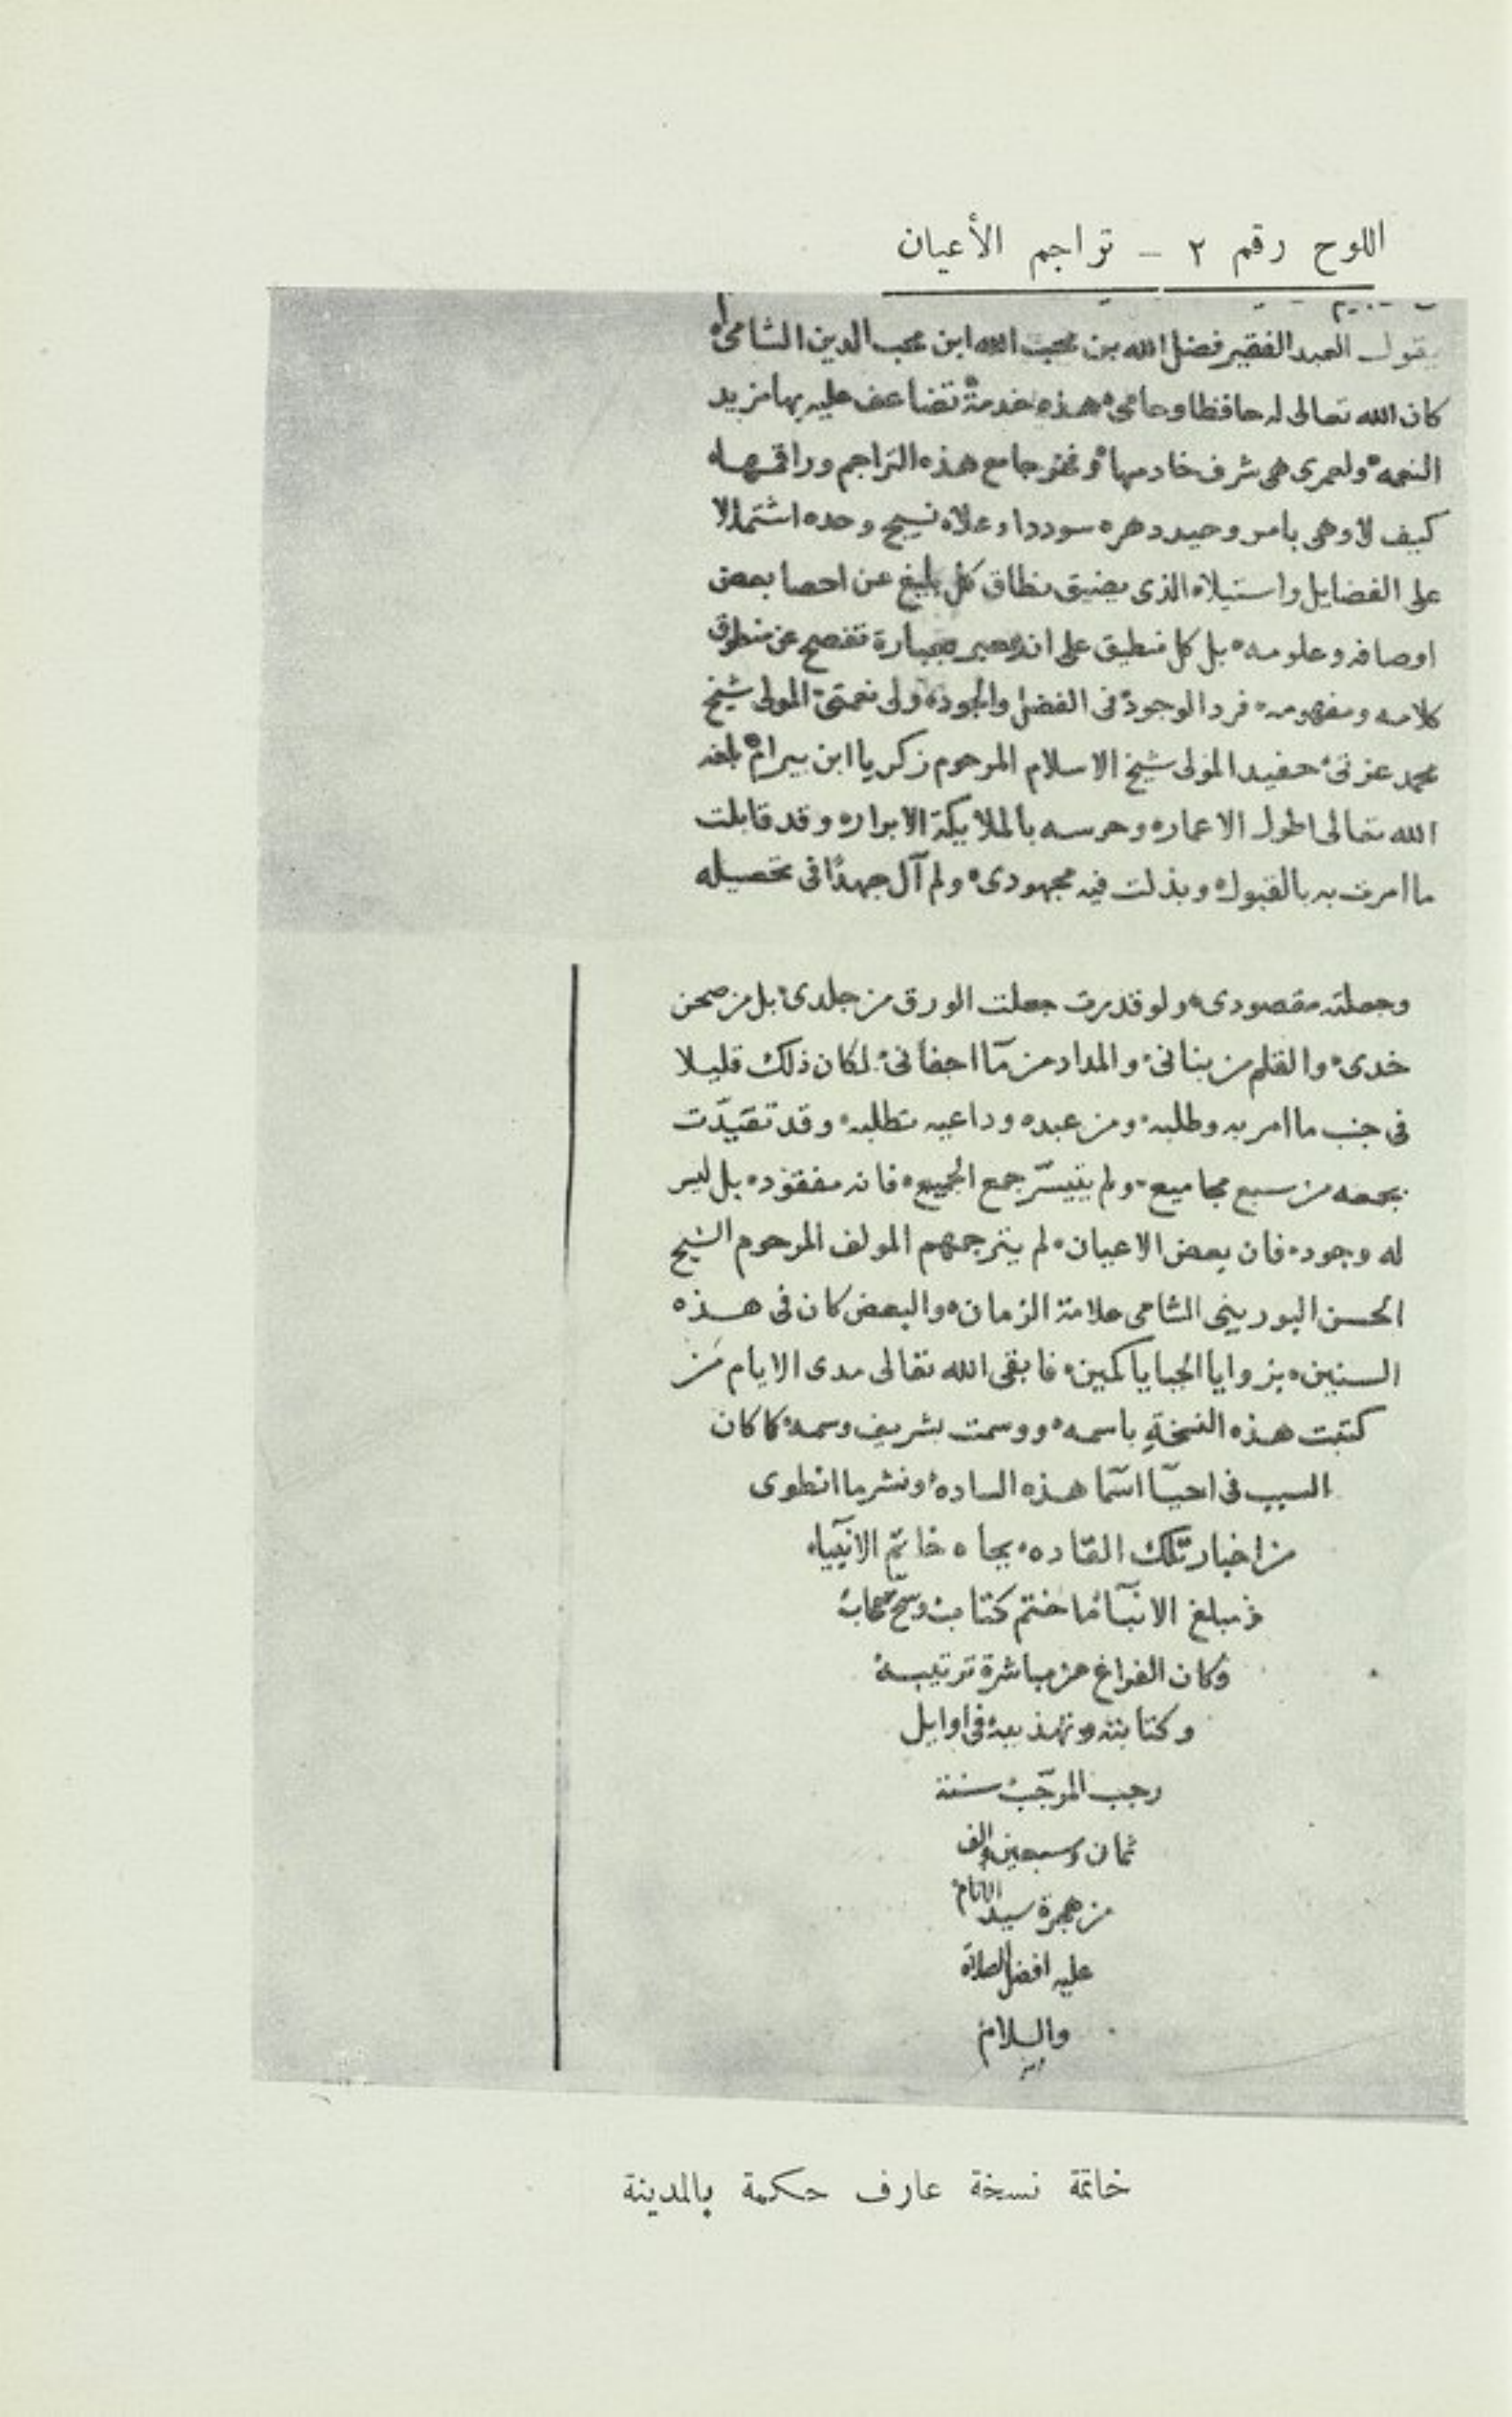 اللوح رقم ٢ - تراجم الأعيان
يقول العبد الفقير فضل الله بن محب الله ابن محب الدين الشامى
كان الله تعالى له حافظا وحامى هذه خدمة تضاعف عليه بها مزيد
النعمه ولعمرى هى شرف خادمها وفخر جامع هذه التراجم وراقمها
كيف لا وهى بامر وحيد دهره سوددا وعلاه نسيج وحده اشتمالا
على الفضايل واستيلاه الذى يضيق نطاق كل بليغ عن احصا بعض
اوصافه وعلومه بل كل منطيق على انه عبارة تفصح عن منطوق
كلامه ومفهومه فرد الوجود فى الفضل والجود ولى نعمتى المولى شيخ
محمد عزتى حفيد المولى شيخ الاسلام المرحوم زكريا ابن بيرام بلغه
الله تعالى اطول الاعمار وحرسه بالملايكة الابرار وقد قابلت
ما امرت به بالقبول وبذلت فيه مجهودى ولم آل جهدًا فى تحصيله
وجعلته مقصودى ولو قدرت جعلت الورق من جلدى بل من صحن
خدى والقلم من بنانى والمداد من مآ اجفانى لكان ذلك قليلا
فى جنب ما امر به وطلبه ومن عبده وداعيه تطلبه وقد تقيّدت
بجمعه من سبع مجاميع ولم يتيسّر جمع الجميع فانه مفقود بل ليس
له وجود فان بعض الاعيان لم يترجمهم المولف المرحوم الشيخ
الحسن البورينى الشامى علامة الزمان والبعض كان فى هذه
السنين بزوايا الخبايا كمين فابقى الله تعالى مدى الايام من
كتبت هذه النسخة باسمه ووسمت بشريف وسمه كما كان
السبب فى احيآ اسمآ هذه الساده ونشر ما انطوى
من اخبار تلك القاده بجاه خاتم الانبياء
ومبلغ الانبآ ما ختم كتاب وسح سحاب
وكان الفراغ من مباشرة ترتيبه
وكتابته وتهذيبه فى اوايل
رجب المرجب سنة
ثمان وسبعين والف
من هجرة سيد الانام
عليه افضل الصلاة
والسلام
خاتمة نسخة عارف حكمة بالمدينة